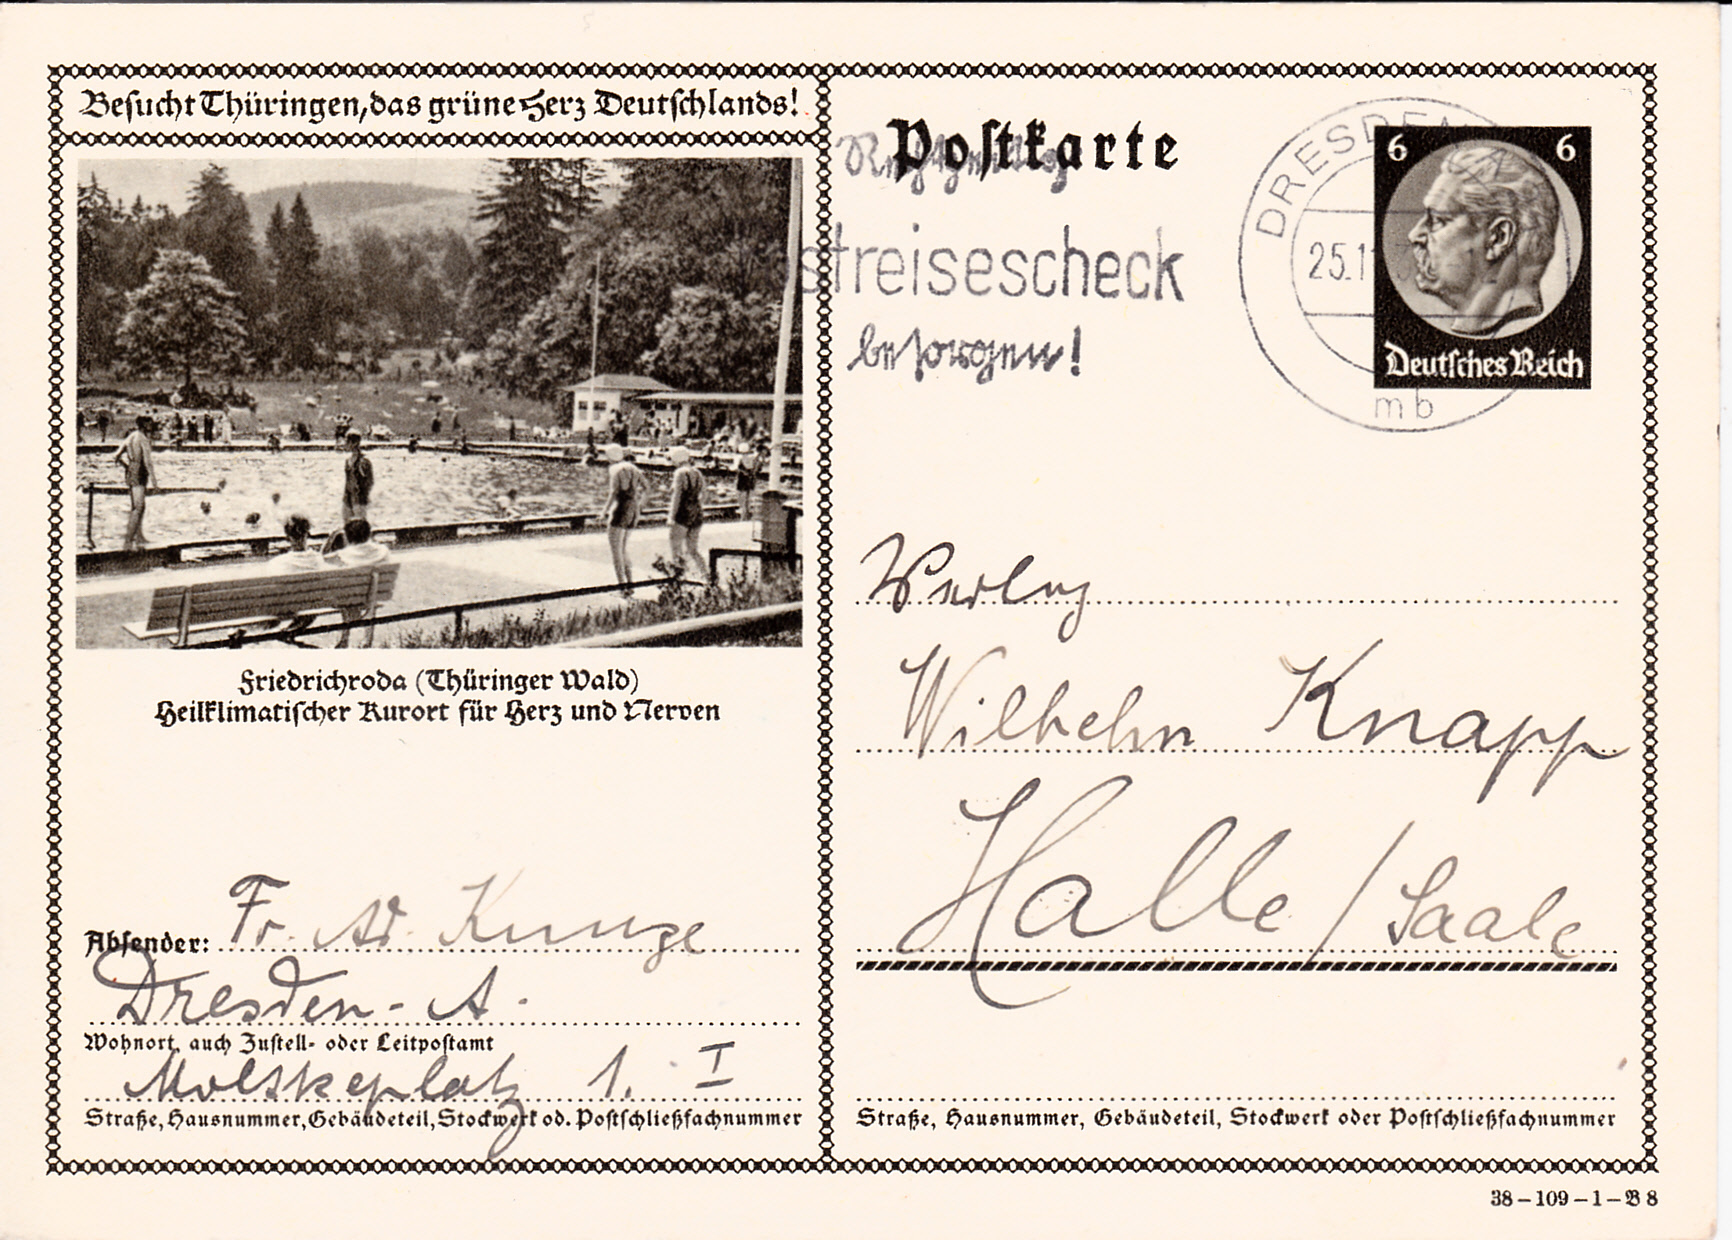 Besucht Thüringen, das grüne Herz Deutschlands!
Friedrichroda (Thüringer Wald)
Heilklimatischer Kurort für Herz und Nerven
Absender: Fr. Ad. Kunze
Dresden-A.
Wohnort, auch Zustell- oder Leitpostamt
Moltkeplatz 1. I
Straße, Hausnummer, Gebäudeteil, Stockwerk od. Postschließfachnummer
Postkarte
Rechtzeitig
streisescheck
besorgen!
DRESDEN
25.1
mb
6 6
Deutsches Reich
Verlag
Wilhelm Knapp
Halle / Saale
Straße, Hausnummer, Gebäudeteil, Stockwerk oder Postschließfachnummer
38-109-1-B 8